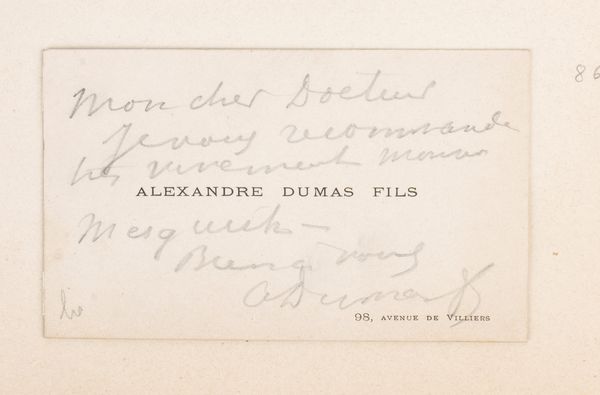 Mon cher Docteur
Je vous recommande
très vivement
ALEXANDRE DUMAS FILS
Bien à vous
A Dumas f
98, AVENUE DE VILLIERS
86